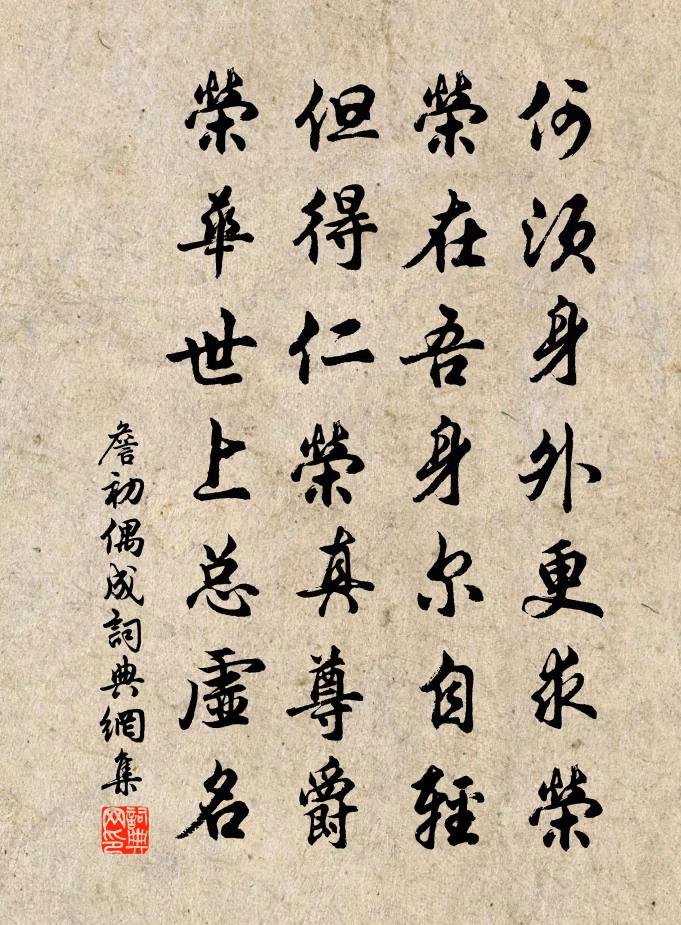 何須身外更求榮
榮在吾身尔自輕
但得仁榮真尊爵
榮華世上总虛名
詹初偶成詞典網集
詞典网印